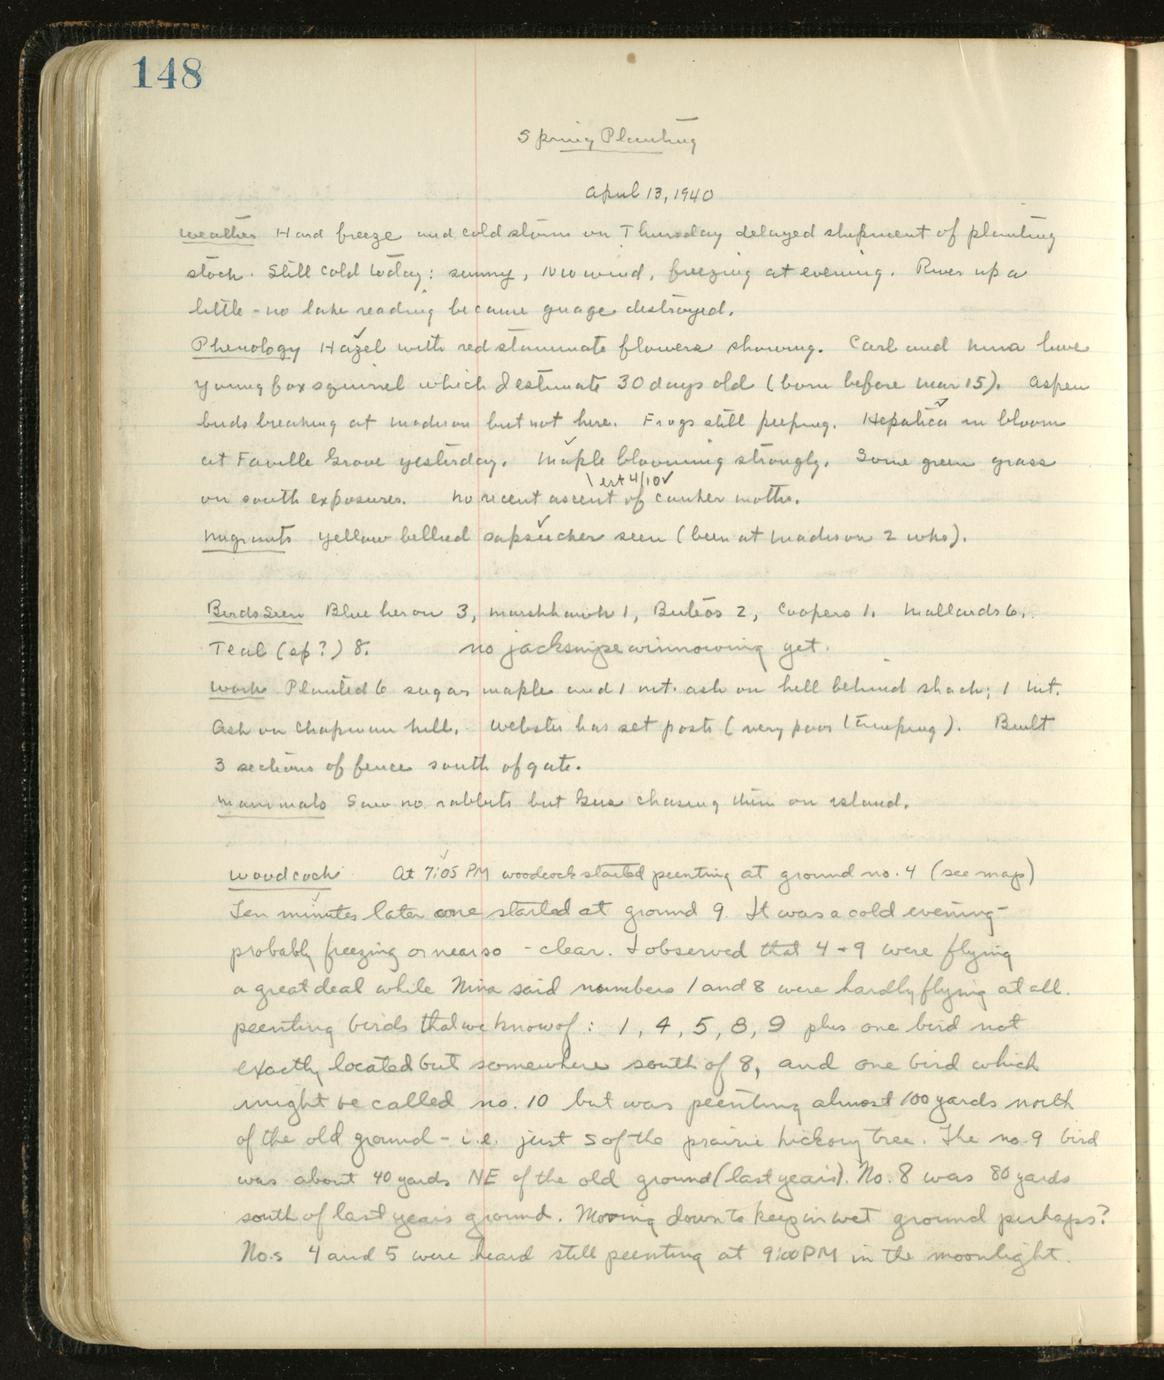 148
Spring Planting
April 13, 1940
Weather Hard freeze and cold storm on Thursday delayed shipment of planting
stock. Still cold today: sunny, NW wind, freezing at evening. River up a
little - no lake reading because guage destroyed.
Phenology Hazel with red staminate flowers showing. Carl and Nina have
young fox squirrel which I estimate 30 days old (born before Mar 15). Aspen
buds breaking at Madison but not here. Frogs still peeping. Hepatica in bloom
at Faville Grove yesterday. Maple blooming strongly. Some green grass
est 4/10
on south exposures. No recent ascent of canker moths.
Migrants Yellow bellied sapsucker seen (been at Madison 2 wks).
Birds Seen Blue heron 3, marshhawk 1, Buteos 2, Coopers 1. Mallards 6.
Teal (sp?) 8. No jacksnipe winnowing yet.
Work Planted 6 sugar maple and 1 mt. ash on hill behind shack; 1 mt.
Ash on Chapman hill. Webster has set posts (very poor tamping). Built
3 sections of fence south of gate.
Mammals Saw no rabbits but Gus chasing them on island.
Woodcock At 7:05 PM woodcock started peenting at ground no. 4 (see map)
Ten minutes later one started at ground 9. It was a cold evening -
probably freezing or near so - clear. I observed that 4 + 9 were flying
a great deal while Nina said numbers 1 and 8 were hardly flying at all.
peenting birds that we know of: 1, 4, 5, 8, 9 plus one bird not
exactly located but somewhere south of 8, and one bird which
might be called no. 10 but was peenting almost 100 yards north
of the old ground - i.e. just S of the prairie hickory tree. The no. 9 bird
was about 40 yards NE of the old ground (last years). No. 8 was 80 yards
south of last years ground. Moving down to keep in wet ground perhaps?
No.s 4 and 5 were heard still peenting at 9:00 PM in the moonlight.